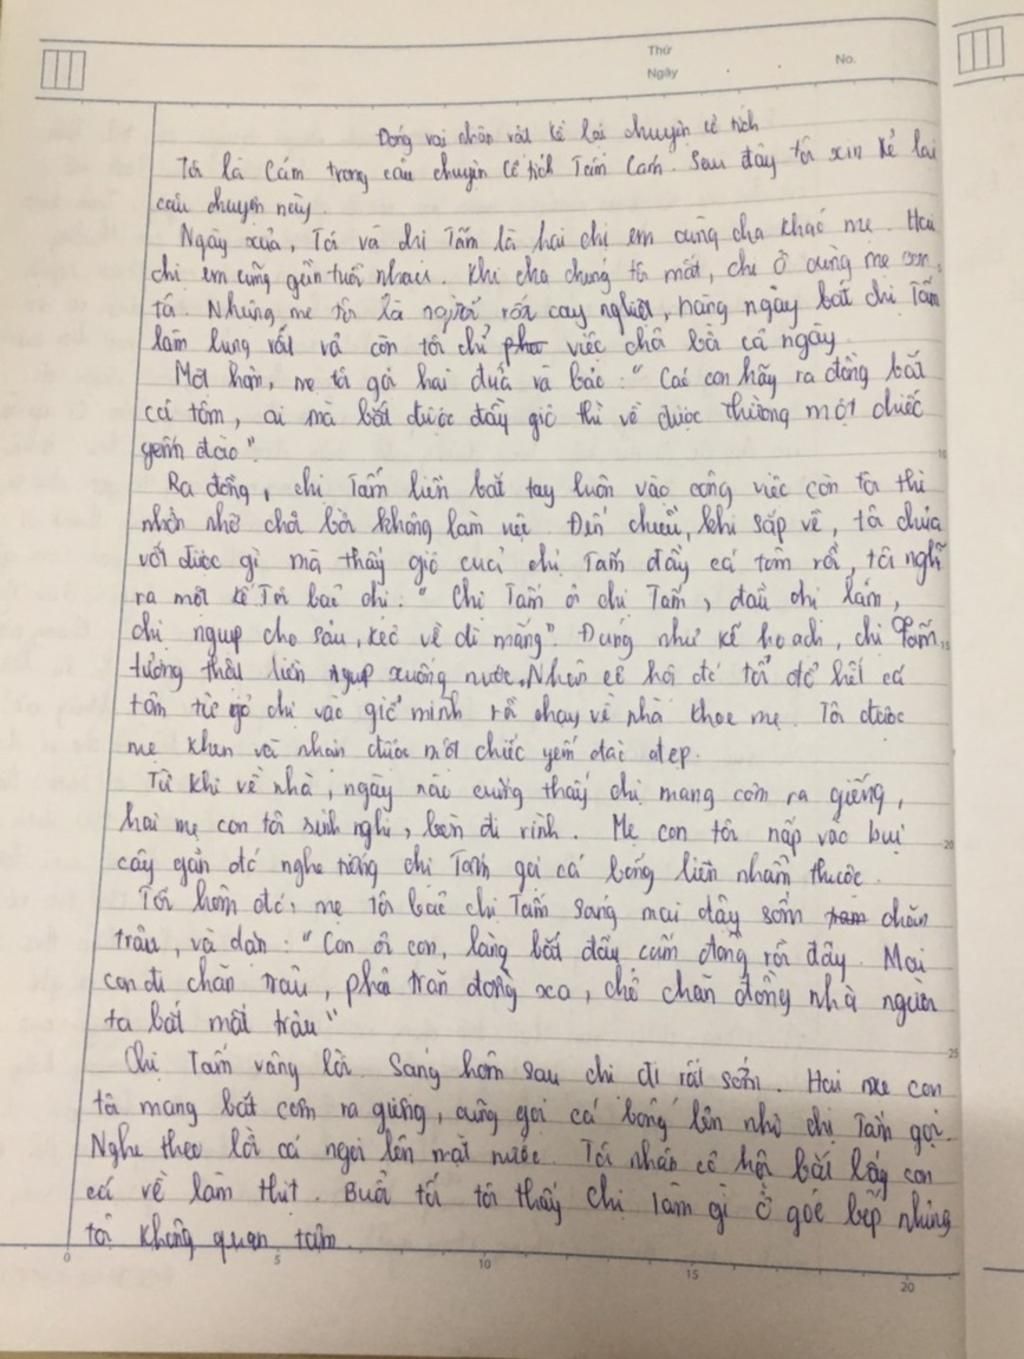 Thứ
Ngày
No.
Đóng vai nhân vật kể lại chuyện cổ tích
Tôi là Cám trong câu chuyện cổ tích Tấm Cám. Sau đây tôi xin kể lại
câu chuyện này.
Ngày xửa, Tôi và chị Tấm là hai chị em cùng cha khác mẹ. Hai
chị em cũng gần tuổi nhau. Khi cha chúng tôi mất, chị ở cùng mẹ con
tôi. Nhưng mẹ tôi là người rất cay nghiệt, hàng ngày bắt chị Tấm
làm lụng vất vả còn tôi chỉ việc chơi cả ngày
Một hôm, mẹ tôi gọi hai đứa và bảo: "Các con hãy ra đồng bắt
cá tôm, ai mà bắt được đầy giỏ thì về được thưởng một chiếc
yếm đào".
Ra đồng, chị Tấm liền bắt tay luôn vào công việc còn tôi thì
nhởn nhơ chơi bời không làm việc. Đến chiều, khi sắp về, tôi chưa
vớt được gì mà thấy giỏ của chị Tấm đầy cá tôm rồi, tôi nghĩ
ra một kế. Tôi bảo chị: "Chị Tấm ơi chị Tấm, đầu chị lấm,
chị ngụp cho sâu, kẻo về dì mắng". Đúng như kế hoạch, chị Tấm
tưởng thật liền ngụp xuống nước. Nhân cơ hội đó tôi đổ hết cá
tôm từ giỏ chị vào giỏ mình rồi chạy về nhà khoe mẹ. Tôi được
mẹ khen và nhận được một chiếc yếm đào đẹp.
Từ khi về nhà, ngày nào cũng thấy chị mang cơm ra giếng,
hai mẹ con tôi sinh nghi, bèn đi rình. Mẹ con tôi nấp vào bụi
cây gần đó nghe tiếng chị Tấm gọi cá bống liền nhẩm thuộc.
Tối hôm đó, mẹ tôi bảo chị Tấm sáng mai dậy sớm chăn
trâu, và dặn: "Con ơi con, làng bắt đầu cấm đồng rồi đấy. Mai
con đi chăn trâu, phải chăn đồng xa, chớ chăn đồng nhà người
ta bắt mất trâu"
Chị Tấm vâng lời. Sáng hôm sau chị đi rất sớm. Hai mẹ con
tôi mang bát cơm ra giếng, cũng gọi cá bống lên như chị Tấm gọi.
Nghe theo lời cá ngoi lên mặt nước. Tôi nhân cơ hội bắt lấy con
cá về làm thịt. Buổi tối tôi thấy chị làm gì ở góc bếp nhưng
tôi không quan tâm.
0 5 10 15 20
10
15
20
25